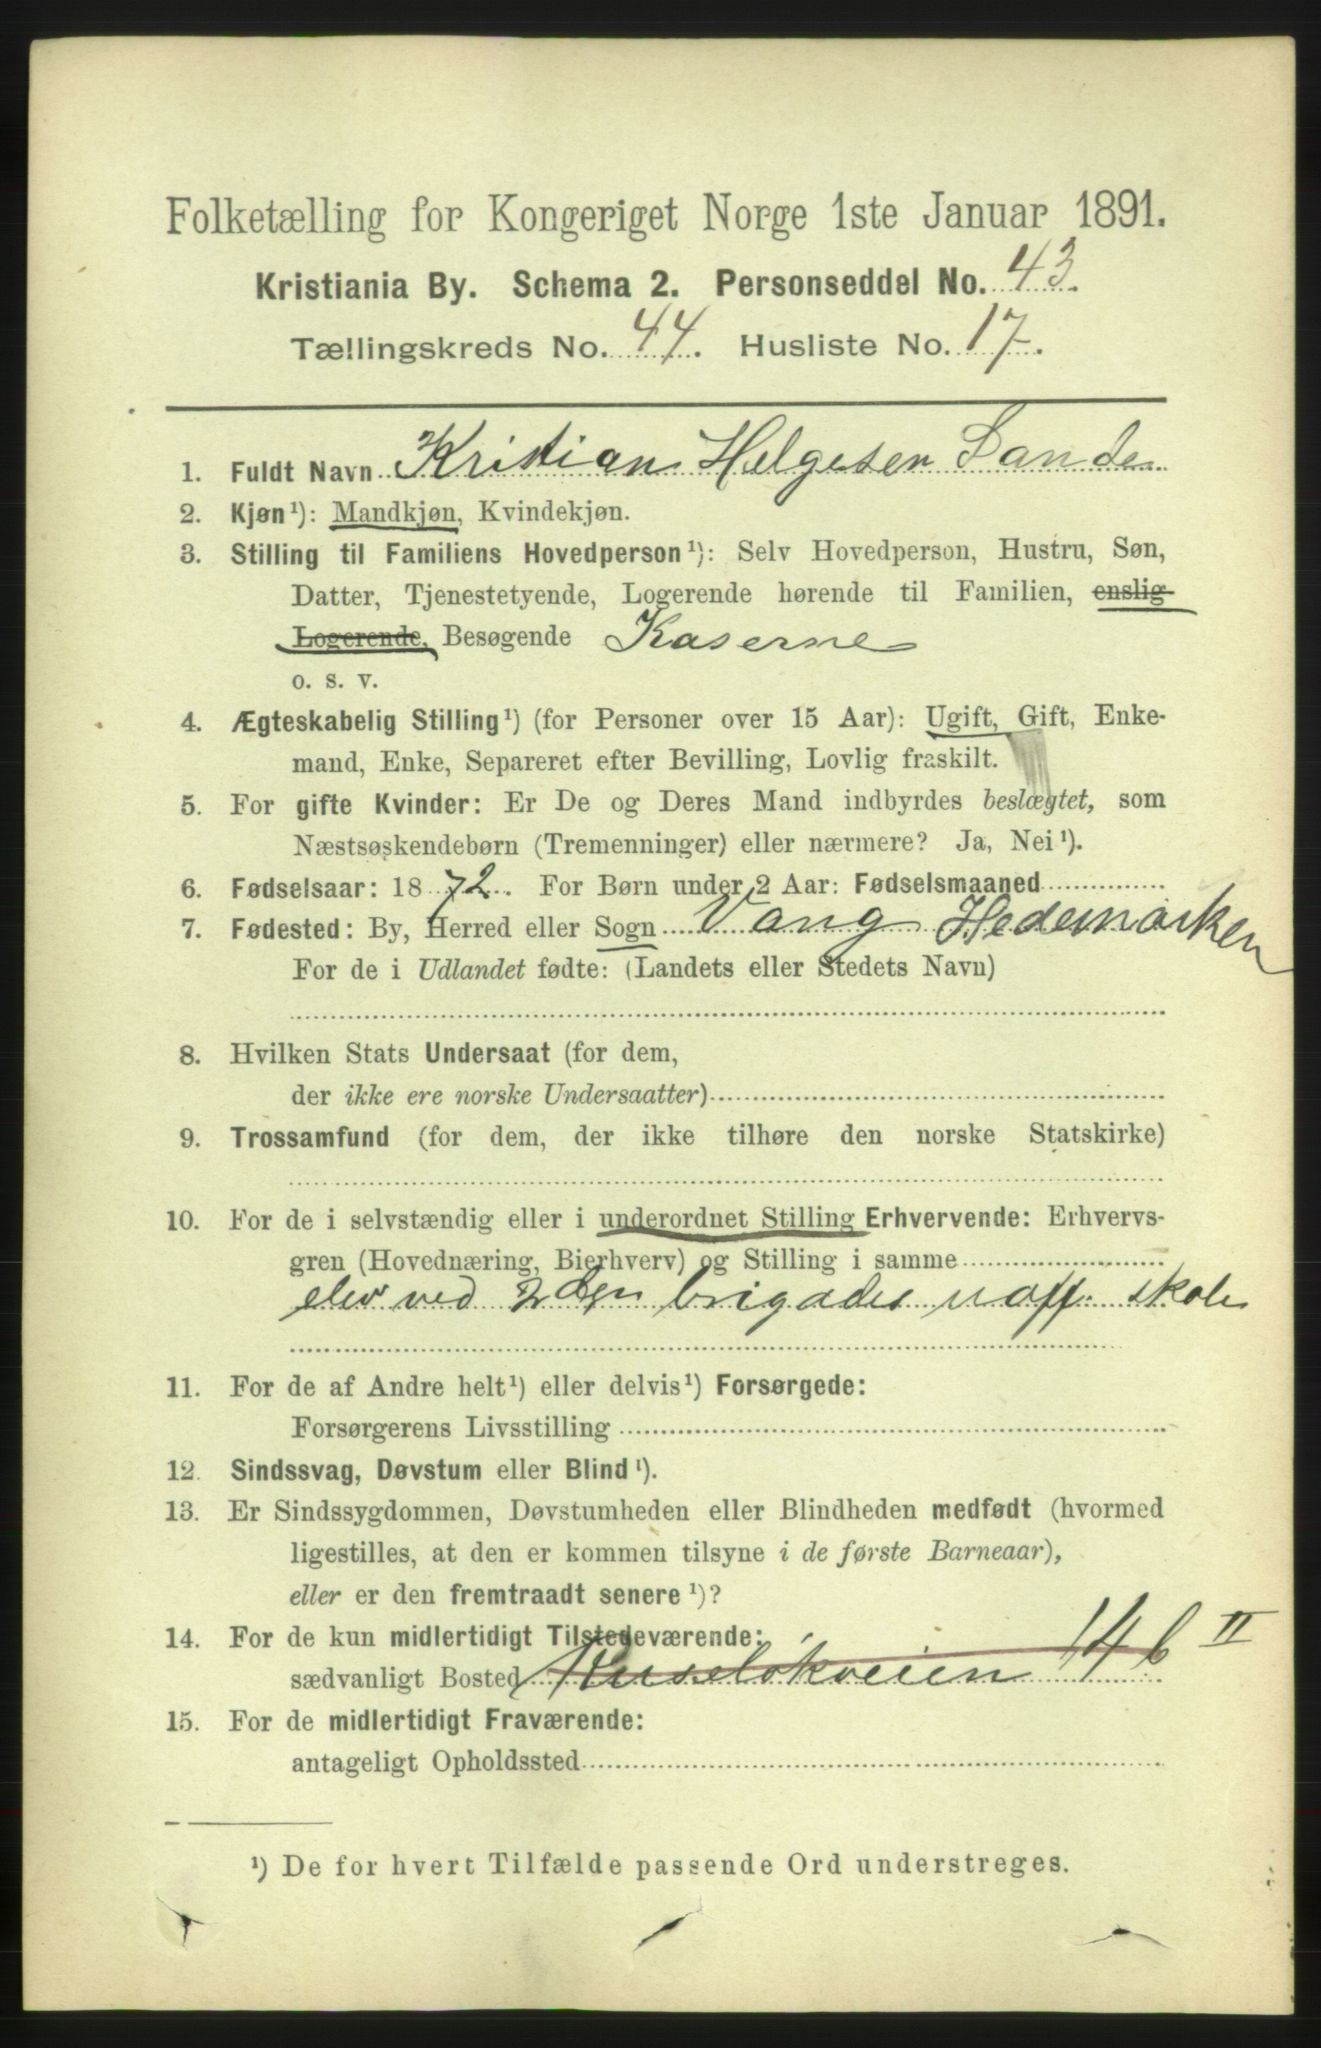 Folketælling for Kongeriget Norge 1ste Januar 1891.
Kristiania By. Schema 2. Personseddel No. 43.
Tællingskreds No. 44. Husliste No. 17.
1. Fuldt Navn Kristian Helgesen Sande
2. Kjøn¹): Mandkjøn, Kvindekjøn.
3. Stilling til Familiens Hovedperson¹): Selv Hovedperson, Hustru, Søn,
Datter, Tjenestetyende, Logerende hørende til Familien, enslig
Logerende, Besøgende Kaserne
o. s. v.
4. Ægteskabelig Stilling¹) (for Personer over 15 Aar): Ugift, Gift, Enke-
mand, Enke, Separeret efter Bevilling, Lovlig fraskilt.
5. For gifte Kvinder: Er De og Deres Mand indbyrdes beslægtet, som
Næstsøskendebørn (Tremenninger) eller nærmere? Ja, Nei¹).
6. Fødselsaar: 1872. For Børn under 2 Aar: Fødselsmaaned
7. Fødested: By, Herred eller Sogn Vang Hedemarken
For de i Udlandet fødte: (Landets eller Stedets Navn)
8. Hvilken Stats Undersaat (for dem,
der ikke ere norske Undersaatter)
9. Trossamfund (for dem, der ikke tilhøre den norske Statskirke)
10. For de i selvstændig eller i underordnet Stilling Erhvervende: Erhvervs-
gren (Hovednæring, Bierhverv) og Stilling i samme
elev ved 2den brigades uoff. skole
11. For de af Andre helt¹) eller delvis¹) Forsørgede:
Forsørgerens Livsstilling
12. Sindssvag, Døvstum eller Blind¹).
13. Er Sindssygdommen, Døvstumheden eller Blindheden medfødt (hvormed
ligestilles, at den er kommen tilsyne i de første Barneaar),
eller er den fremtraadt senere¹)?
14. For de kun midlertidigt Tilstedeværende:
sædvanligt Bosted Ruseløkveien 14 b II
15. For de midlertidigt Fraværende:
antageligt Opholdssted
¹) De for hvert Tilfælde passende Ord understreges.